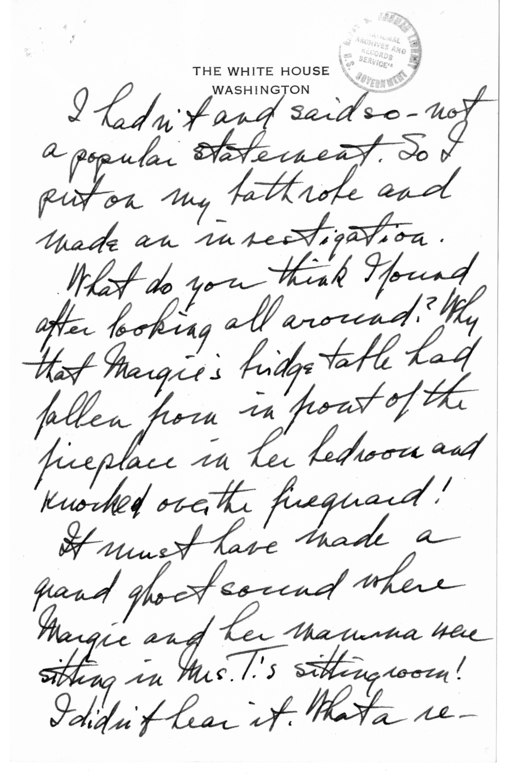 HARRY S. TRUMAN LIBRARY
NATIONAL
ARCHIVES AND
RECORDS
SERVICE
U.S. GOVERNMENT
THE WHITE HOUSE
WASHINGTON
I hadn't and said so - not
a popular statement. So I
put on my bathrobe and
made an investigation.
What do you think I found
after looking all around? Why
that Margie's bridge table had
fallen from in front of the
fireplace in her bedroom and
knocked over the fireguard!
It must have made a
grand ghost sound where
Margie and her mamma were
sitting in Mrs. T.'s sittingroom!
I didn't hear it. What a re-